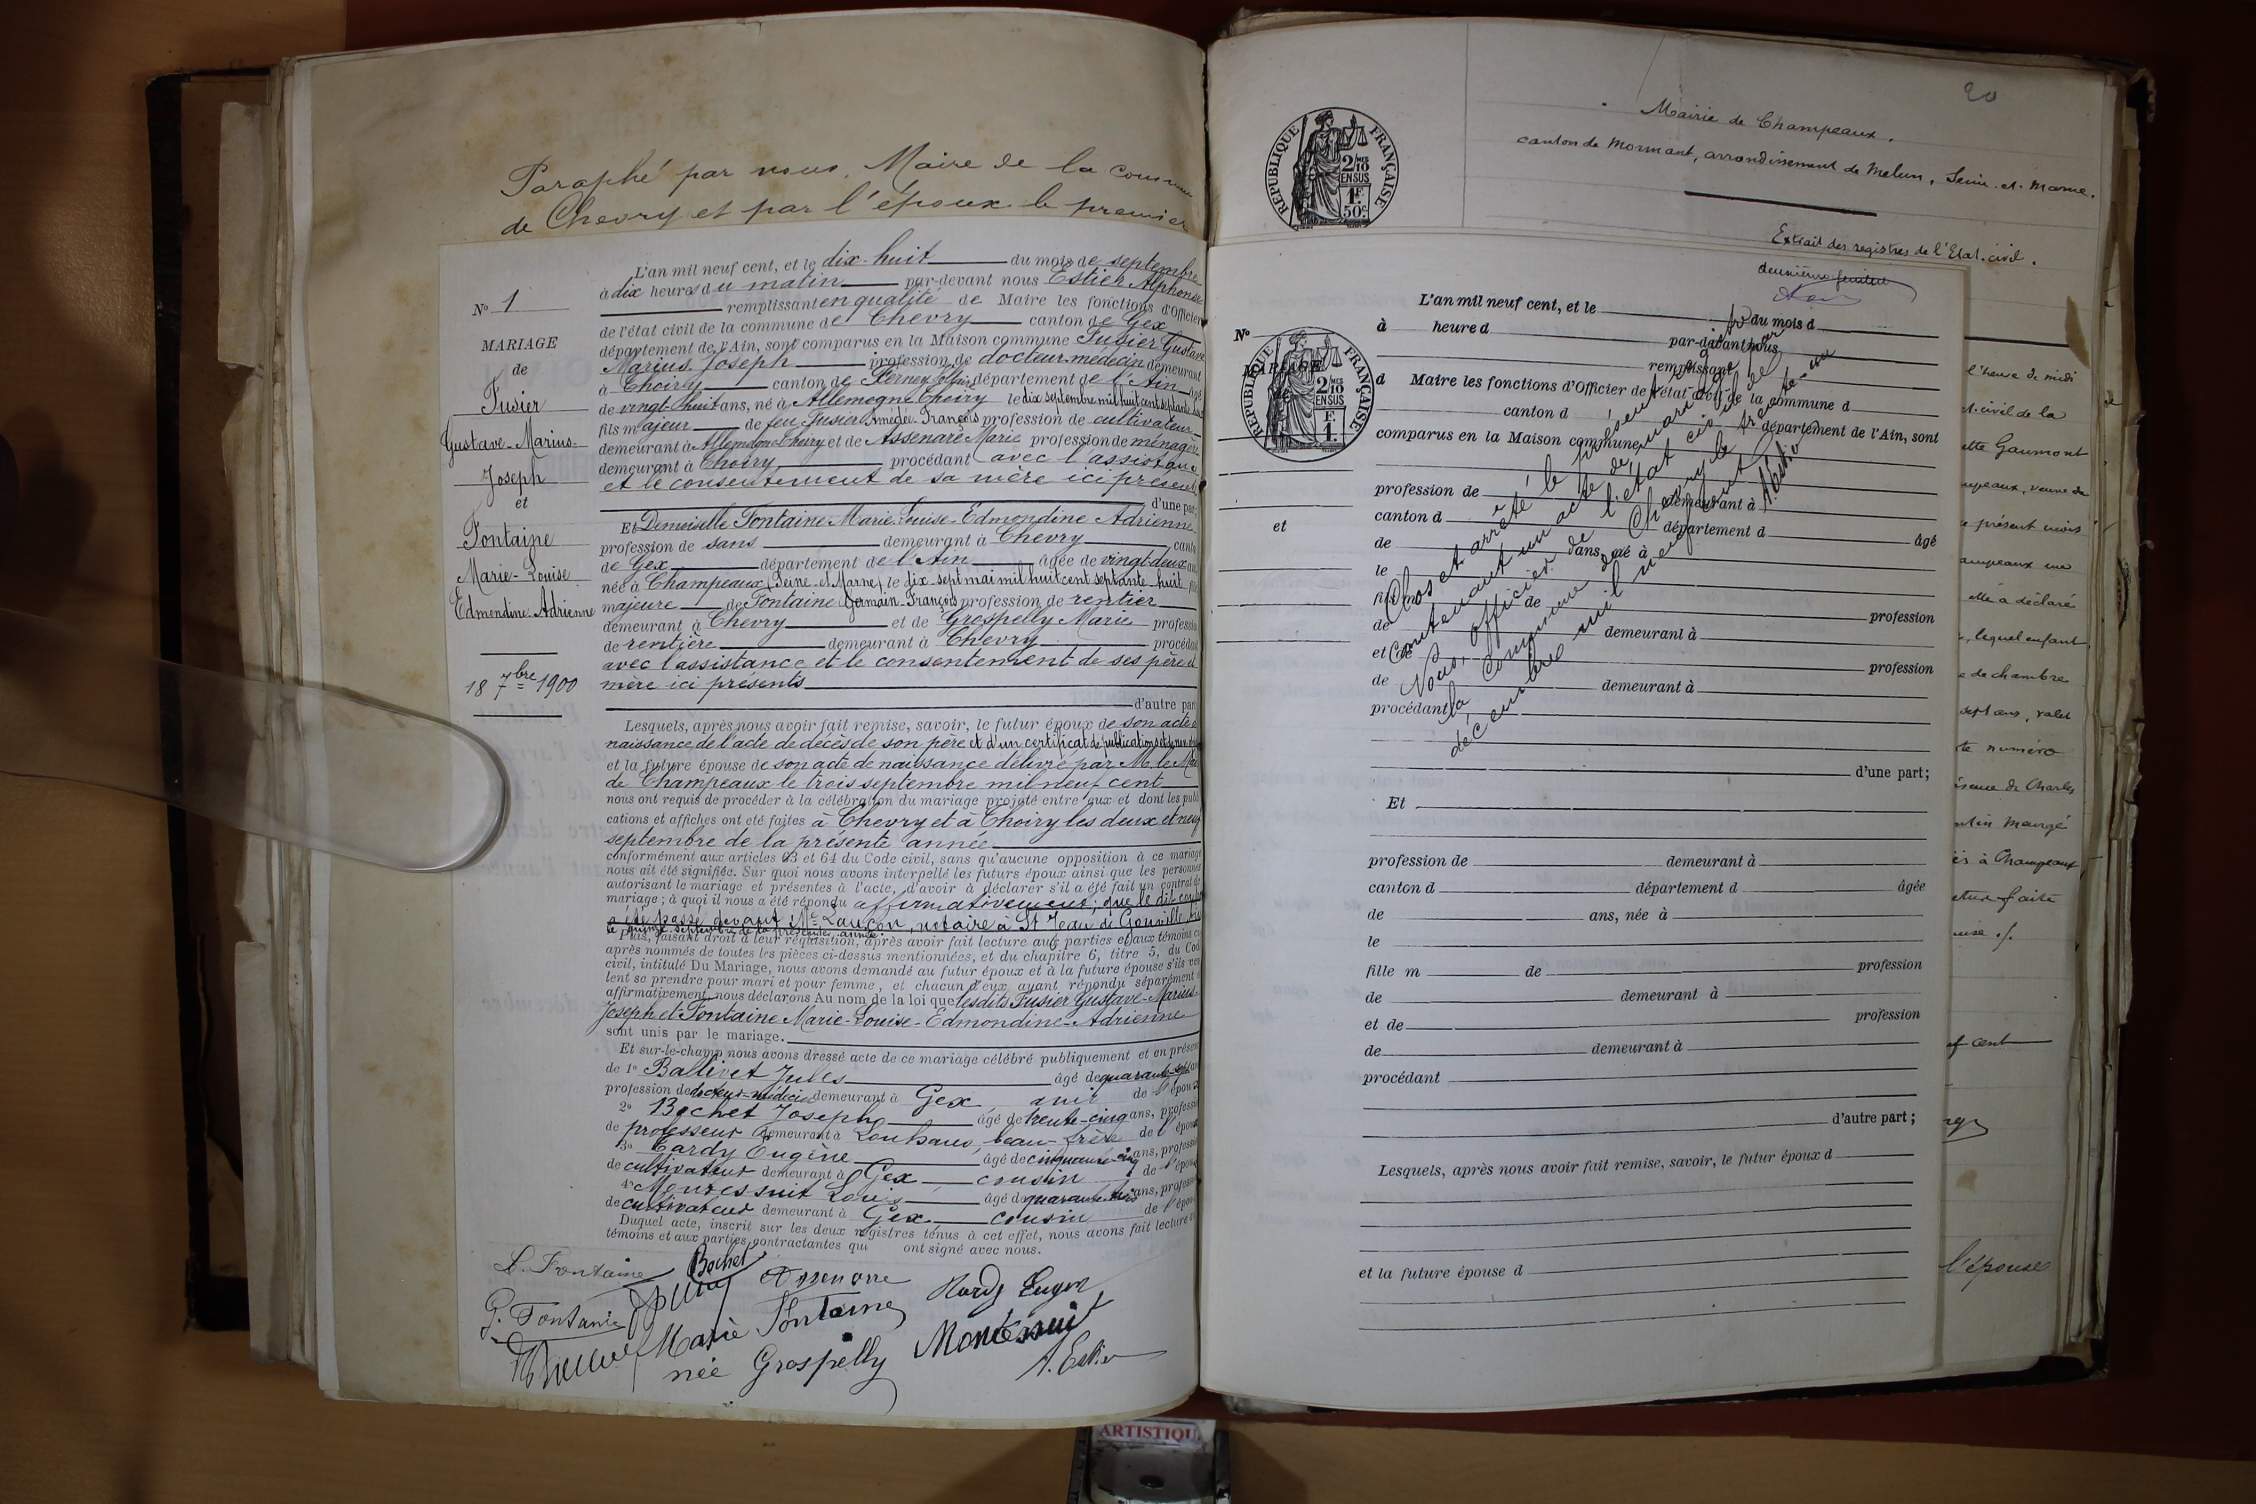 Paraphé par nous, Maire de la commune
de Chevry et par l'époux le premier
No 1
MARIAGE
de
Fusier
Gustave-Marius-
Joseph
et
Fontaine
Marie-Louise
Edmondine-Adrienne
18 7bre 1900
L'an mil neuf cent, et le dix-huit du mois de septembre
à dix heures du matin par-devant nous Estier Alphonse
remplissant en qualité de Maire les fonctions d'Officier
de l'état civil de la commune de Chevry canton de Gex
département de l'Ain, sont comparus en la Maison commune Fusier Gustave
Marius Joseph profession de docteur-médecin demeurant
à Thoiry canton de Ferney département de l'Ain âgé
de vingt-huit ans, né à Allemogne Thoiry le dix septembre mil huit cent septante
fils majeur de feu Fusier Amédée François profession de cultivateur
demeurant à Allemogne Thoiry et de Assenare Marie profession de ménagère
demeurant à Thoiry procédant avec l'assistance
et le consentement de sa mère ici présente
d'une part
Et Demoiselle Fontaine Marie-Louise-Edmondine Adrienne
profession de sans demeurant à Chevry canton
de Gex département de l'Ain âgée de vingt-deux ans
née à Champeaux (Seine-et-Marne) le dix-sept mai mil huit cent septante-huit fille
majeure de Fontaine Germain-François profession de rentier
demeurant à Chevry et de Grospelly Marie profession
de rentière demeurant à Chevry procédant
avec l'assistance et le consentement de ses père et
mère ici présents
d'autre part
Lesquels, après nous avoir fait remise, savoir, le futur époux de son acte de
naissance de l'acte de décès de son père et d'un certificat de publications
et la future épouse de son acte de naissance délivré par M. le Maire
de Champeaux le trois septembre mil neuf cent
nous ont requis de procéder à la célébration du mariage projeté entre eux et dont les publi
cations et affiches ont été faites à Chevry et à Thoiry les deux et neuf
septembre de la présente année
conformément aux articles 63 et 64 du Code civil, sans qu'aucune opposition à ce mariage
nous ait été signifiée. Sur quoi nous avons interpellé les futurs époux ainsi que les personnes
autorisant le mariage et présentes à l'acte, d'avoir à déclarer s'il a été fait un contrat de
mariage; à quoi il nous a été répondu affirmativement; que le dit contrat
a été passé devant Me Lançon, notaire à St Jean de Gonville
le quinze septembre de la présente année.
Puis, faisant droit à leur réquisition, après avoir fait lecture aux parties et aux témoins ci
après nommés de toutes les pièces ci-dessus mentionnées, et du chapitre 6, titre 5, du Code
civil, intitulé Du Mariage, nous avons demandé au futur époux et à la future épouse s'ils veu
lent se prendre pour mari et pour femme, et chacun d'eux ayant répondu séparément et
affirmativement, nous déclarons Au nom de la loi que lesdits Fusier Gustave-Marius-
Joseph et Fontaine Marie-Louise-Edmondine-Adrienne
sont unis par le mariage.
Et sur-le-champ nous avons dressé acte de ce mariage célébré publiquement et en présence
de 1o Ballivet Jules âgé de quarante-sept ans
profession de docteur-médecin demeurant à Gex ami de l'époux
2o Bochet Joseph âgé de trente-cinq ans, profession
de professeur demeurant à Louhans, beau-frère de l'époux
3o Tardy Eugène âgé de cinquante-cinq ans, profession
de cultivateur demeurant à Gex cousin de l'épouse
4o Montessuit Louis âgé de quarante-trois ans, profession
de cultivateur demeurant à Gex cousin de l'épouse
Duquel acte, inscrit sur les deux registres tenus à cet effet, nous avons fait lecture aux
témoins et aux parties contractantes qui ont signé avec nous.
L. Fontaine Bochet Assenare Tardy Eugène
G. Fontaine Marie Fontaine Montessuit
née Grospelly A. Estier
20
Mairie de Champeaux.
canton de Mormant, arrondissement de Melun, Seine-et-Marne.
Extrait des registres de l'Etat-civil.
RÉPUBLIQUE FRANÇAISE
2/10 MES
EN SUS
1F.
50c
deuxième feuillet
RÉPUBLIQUE FRANÇAISE
2/10 MES
EN SUS
F.
1.
No
MARIAGE
de
et
L'an mil neuf cent, et le du mois d
à heure d par-devant nous
remplissant
d Maire les fonctions d'Officier de l'état civil de la commune d
canton d département de l'Ain, sont
comparus en la Maison commune
profession de demeurant à
canton d département d âgé
de ans, né à
le
fils m de
de demeurant à profession
et de
de demeurant à profession
procédant
d'une part;
Clos et arrêté le présent registre
contenant un acte de mariage par
Nous, officier de l'état civil de
la commune de Chevry le trente-un
décembre mil neuf cent
A Estier
Et
profession de demeurant à
canton d département d âgée
de ans, née à
le
fille m de profession
de demeurant à
et de profession
de demeurant à
procédant
d'autre part;
Lesquels, après nous avoir fait remise, savoir, le futur époux d
et la future épouse d
l'heure de midi
civil de la
Gaumont
mpeaux, veuve de
présent mois
ampeaux une
elle a déclaré
lequel enfant
de chambre
sept ans, valet
numéro
de Charles
à Champeaux
faite
cent
l'épouse
ARTISTIQU